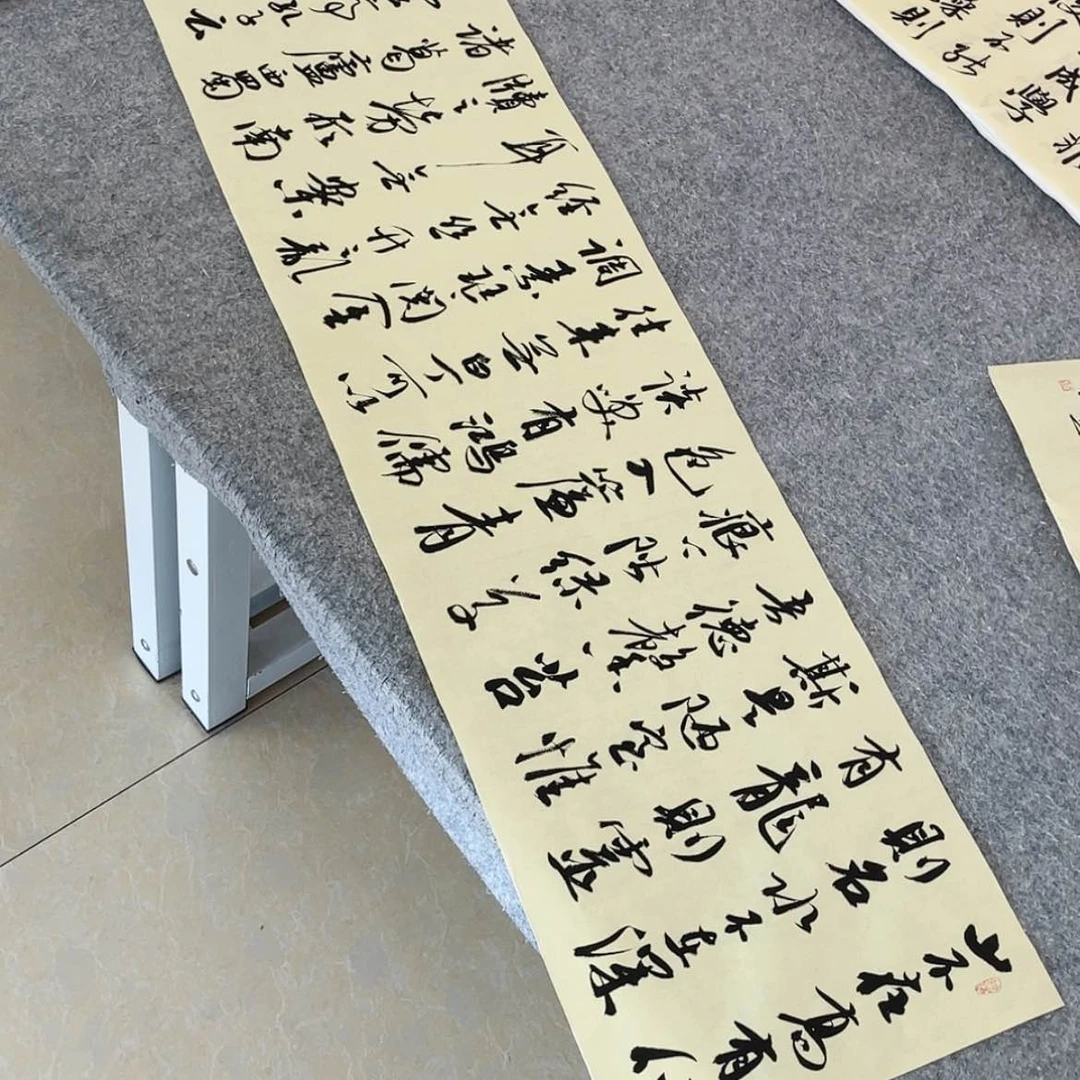 山不在高有仙
則名水不在深
有龍則靈
斯是陋室惟
吾德馨苔
痕上階綠草
色入簾青
談笑有鴻儒
往来無白丁可以
調素琴閱金
经無丝竹之亂
耳無案
牘之勞形南
諸葛廬西蜀
亭孔子云
非
成學
則不能
躁則